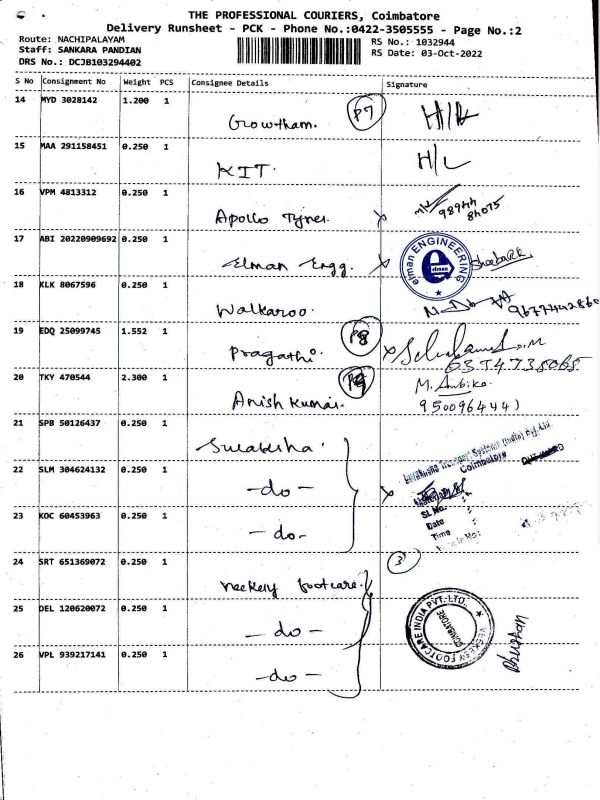 THE PROFESSIONAL COURIERS, Coimbatore
Delivery Runsheet - PCK - Phone No.:0422-3505555 - Page No.:2
Route: NACHIPALAYAM
RS No.: 1032944
Staff: SANKARA PANDIAN
RS Date: 03-Oct-2022
DRS No.: DCJB103294402
S No Consignment No Weight PCS Consignee Details Signature
14 MYD 3028142 1.200 1 Growtham. P7
15 MAA 291158451 0.250 1 KIT. H/L
16 VPM 4813312 0.250 1 Apollo Tyres
98944
84075
17 ABI 20220909692 0.250 1 Elman Engg. elman ENGINEERING elman
18 KLK 8067596 0.250 1 Walkaroo. 9677442860
19 EDQ 25099745 1.552 1 Pragathi. P8
6374738065
20 TKY 470544 2.300 1 Anish Kumar. P9 M. Ambika
950096444)
21 SPB 50126437 0.250 1
Transport Systems (India) Pvt. Ltd
Coimbatore
22 SLM 304624132 0.250 1 -do-
SL No. :
23 KOC 60453963 0.250 1 -do-
Date :
Time :
24 SRT 651369072 0.250 1 Veekesy footcare. 3
25 DEL 120620072 0.250 1 -do- VEEKESY FOOTCARE INDIA PVT. LTD. COIMBATORE
26 VPL 939217141 0.250 1 -do-